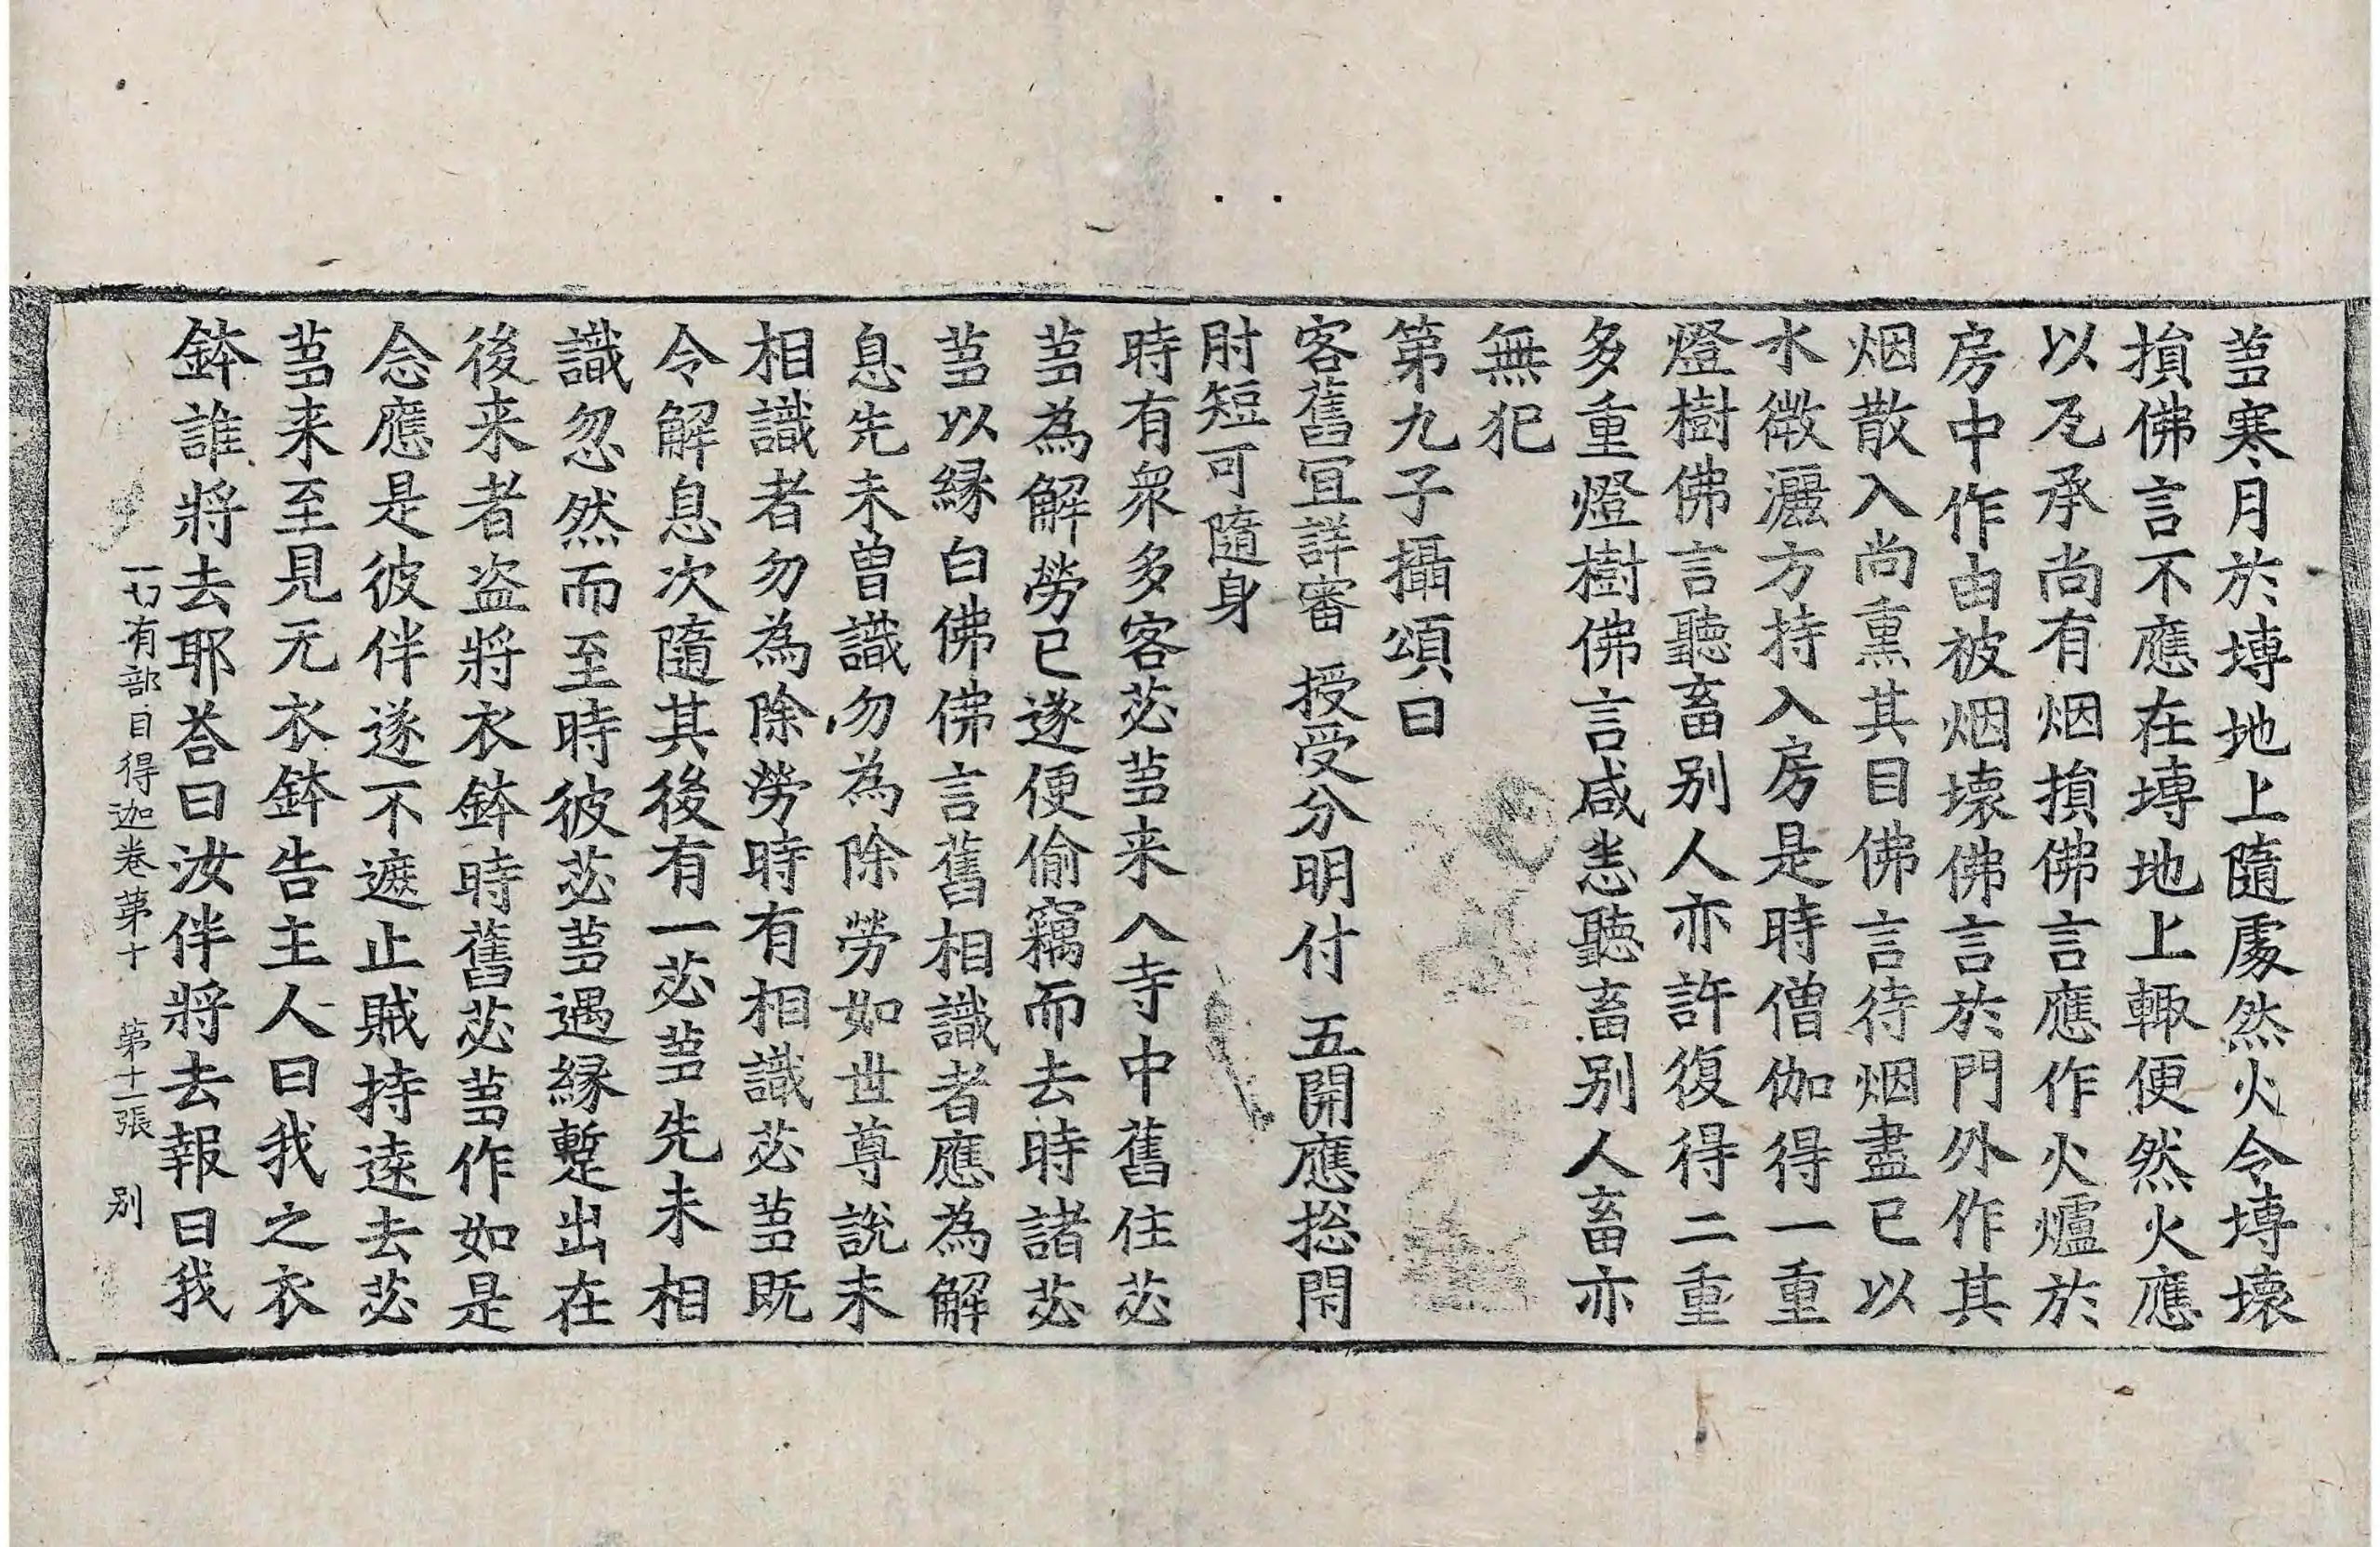 苾寒月於塼地上隨處然火令塼壞
損佛言不應在塼地上輙便然火應
以瓦承尚有烟損佛言應作火爐於
房中作由被烟壞佛言於門外作其
烟散入尚熏其目佛言待烟盡已以
水微灑方持入房是時僧伽得一重
燈樹佛言聽畜别人亦許復得二重
多重燈樹佛言咸悉聽畜别人畜亦
無犯
第九子攝頌曰
客舊冝詳審 授受分明付 五開應捴閇
肘短可隨身
時有衆多客苾蒭来入寺中舊住苾
蒭為解勞已遂便偷竊而去時諸苾
蒭以縁白佛佛言舊相識者應為解
息先未曽識勿為除勞如世尊說未
相識者勿為除勞時有相識苾蒭既
令解息次隨其後有一苾蒭先未相
識忽然而至時彼苾蒭遇縁蹔出在
後来者盗將衣鉢時舊苾蒭作如是
念應是彼伴遂不遮止賊持逺去苾
蒭来至見无衣鉢告主人曰我之衣
鉢誰將去耶荅曰汝伴將去報曰我
一切有部目得迦卷第十 第十二張 别